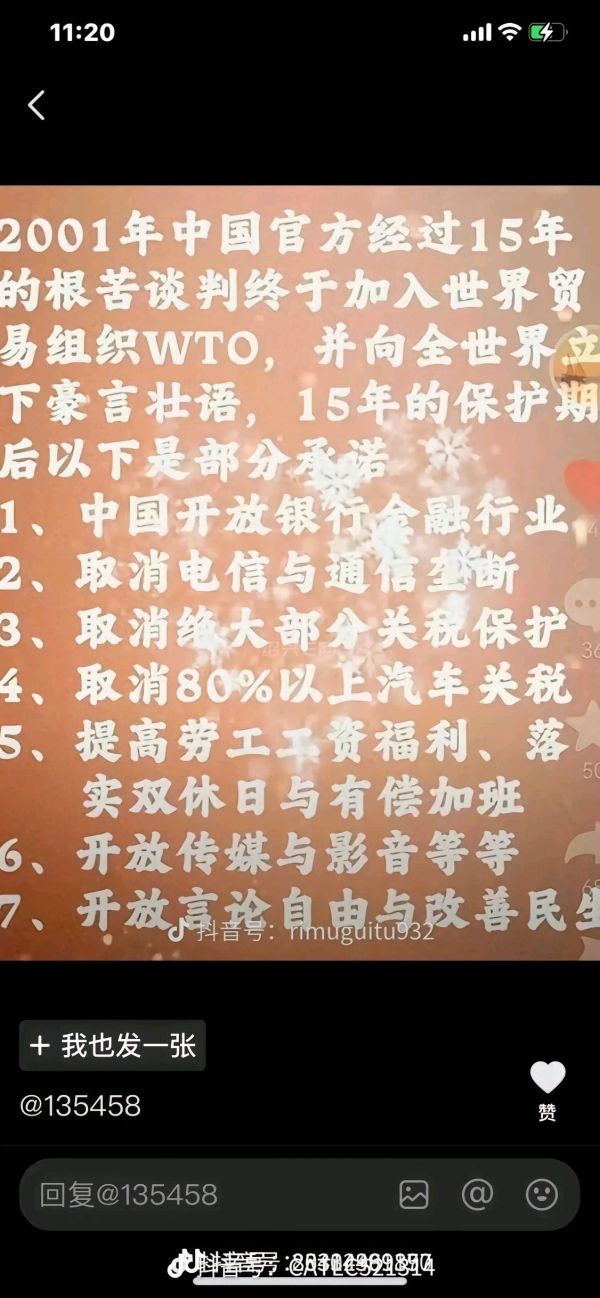 11:20
2001年中国官方经过15年
的根苦谈判终于加入世界贸
易组织WTO，并向全世界立
下豪言壮语，15年的保护期
后以下是部分承诺
1、中国开放银行金融行业
2、取消电信与通信垄断
3、取消绝大部分关税保护
4、取消80%以上汽车关税
5、提高劳工工资福利、落
实双休日与有偿加班
6、开放传媒与影音等等
7、开放言论自由与改善民生
抖音号：rimuguitu932
+ 我也发一张
@135458
赞
回复@135458